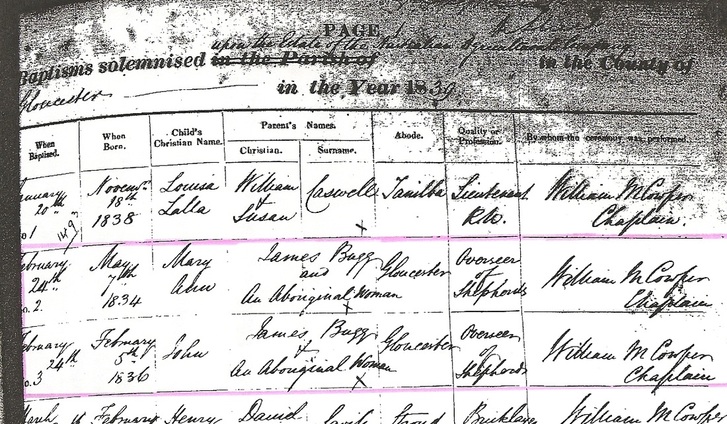 PAGE
upon the Estate of the Australian Agricultural Company
Baptisms solemnised in the Parish of in the County of
Gloucester in the Year 1839
When Baptised. When Born. Child's Christian Name. Parent's Names. Abode. Quality or Profession. By whom the ceremony was performed.
Christian. Surname.
January Novemr Louisa William Caswell Tanilba Lieutenant William McCowper
20th 18th Lalla & R.N. Chaplain.
No 1 1838 Susan x
February May Mary James Bugg Gloucester Overseer William McCowper
24th 7th Ann and of Chaplain
No. 2. 1834 An Aboriginal Woman Shepherds
x
February February John James Bugg Gloucester Overseer William McCowper
24th 5th & of Chaplain
No. 3 1836 An Aboriginal Woman Shepherds
x
March February Henry Daniel Stroud Bricklayer William McCowper